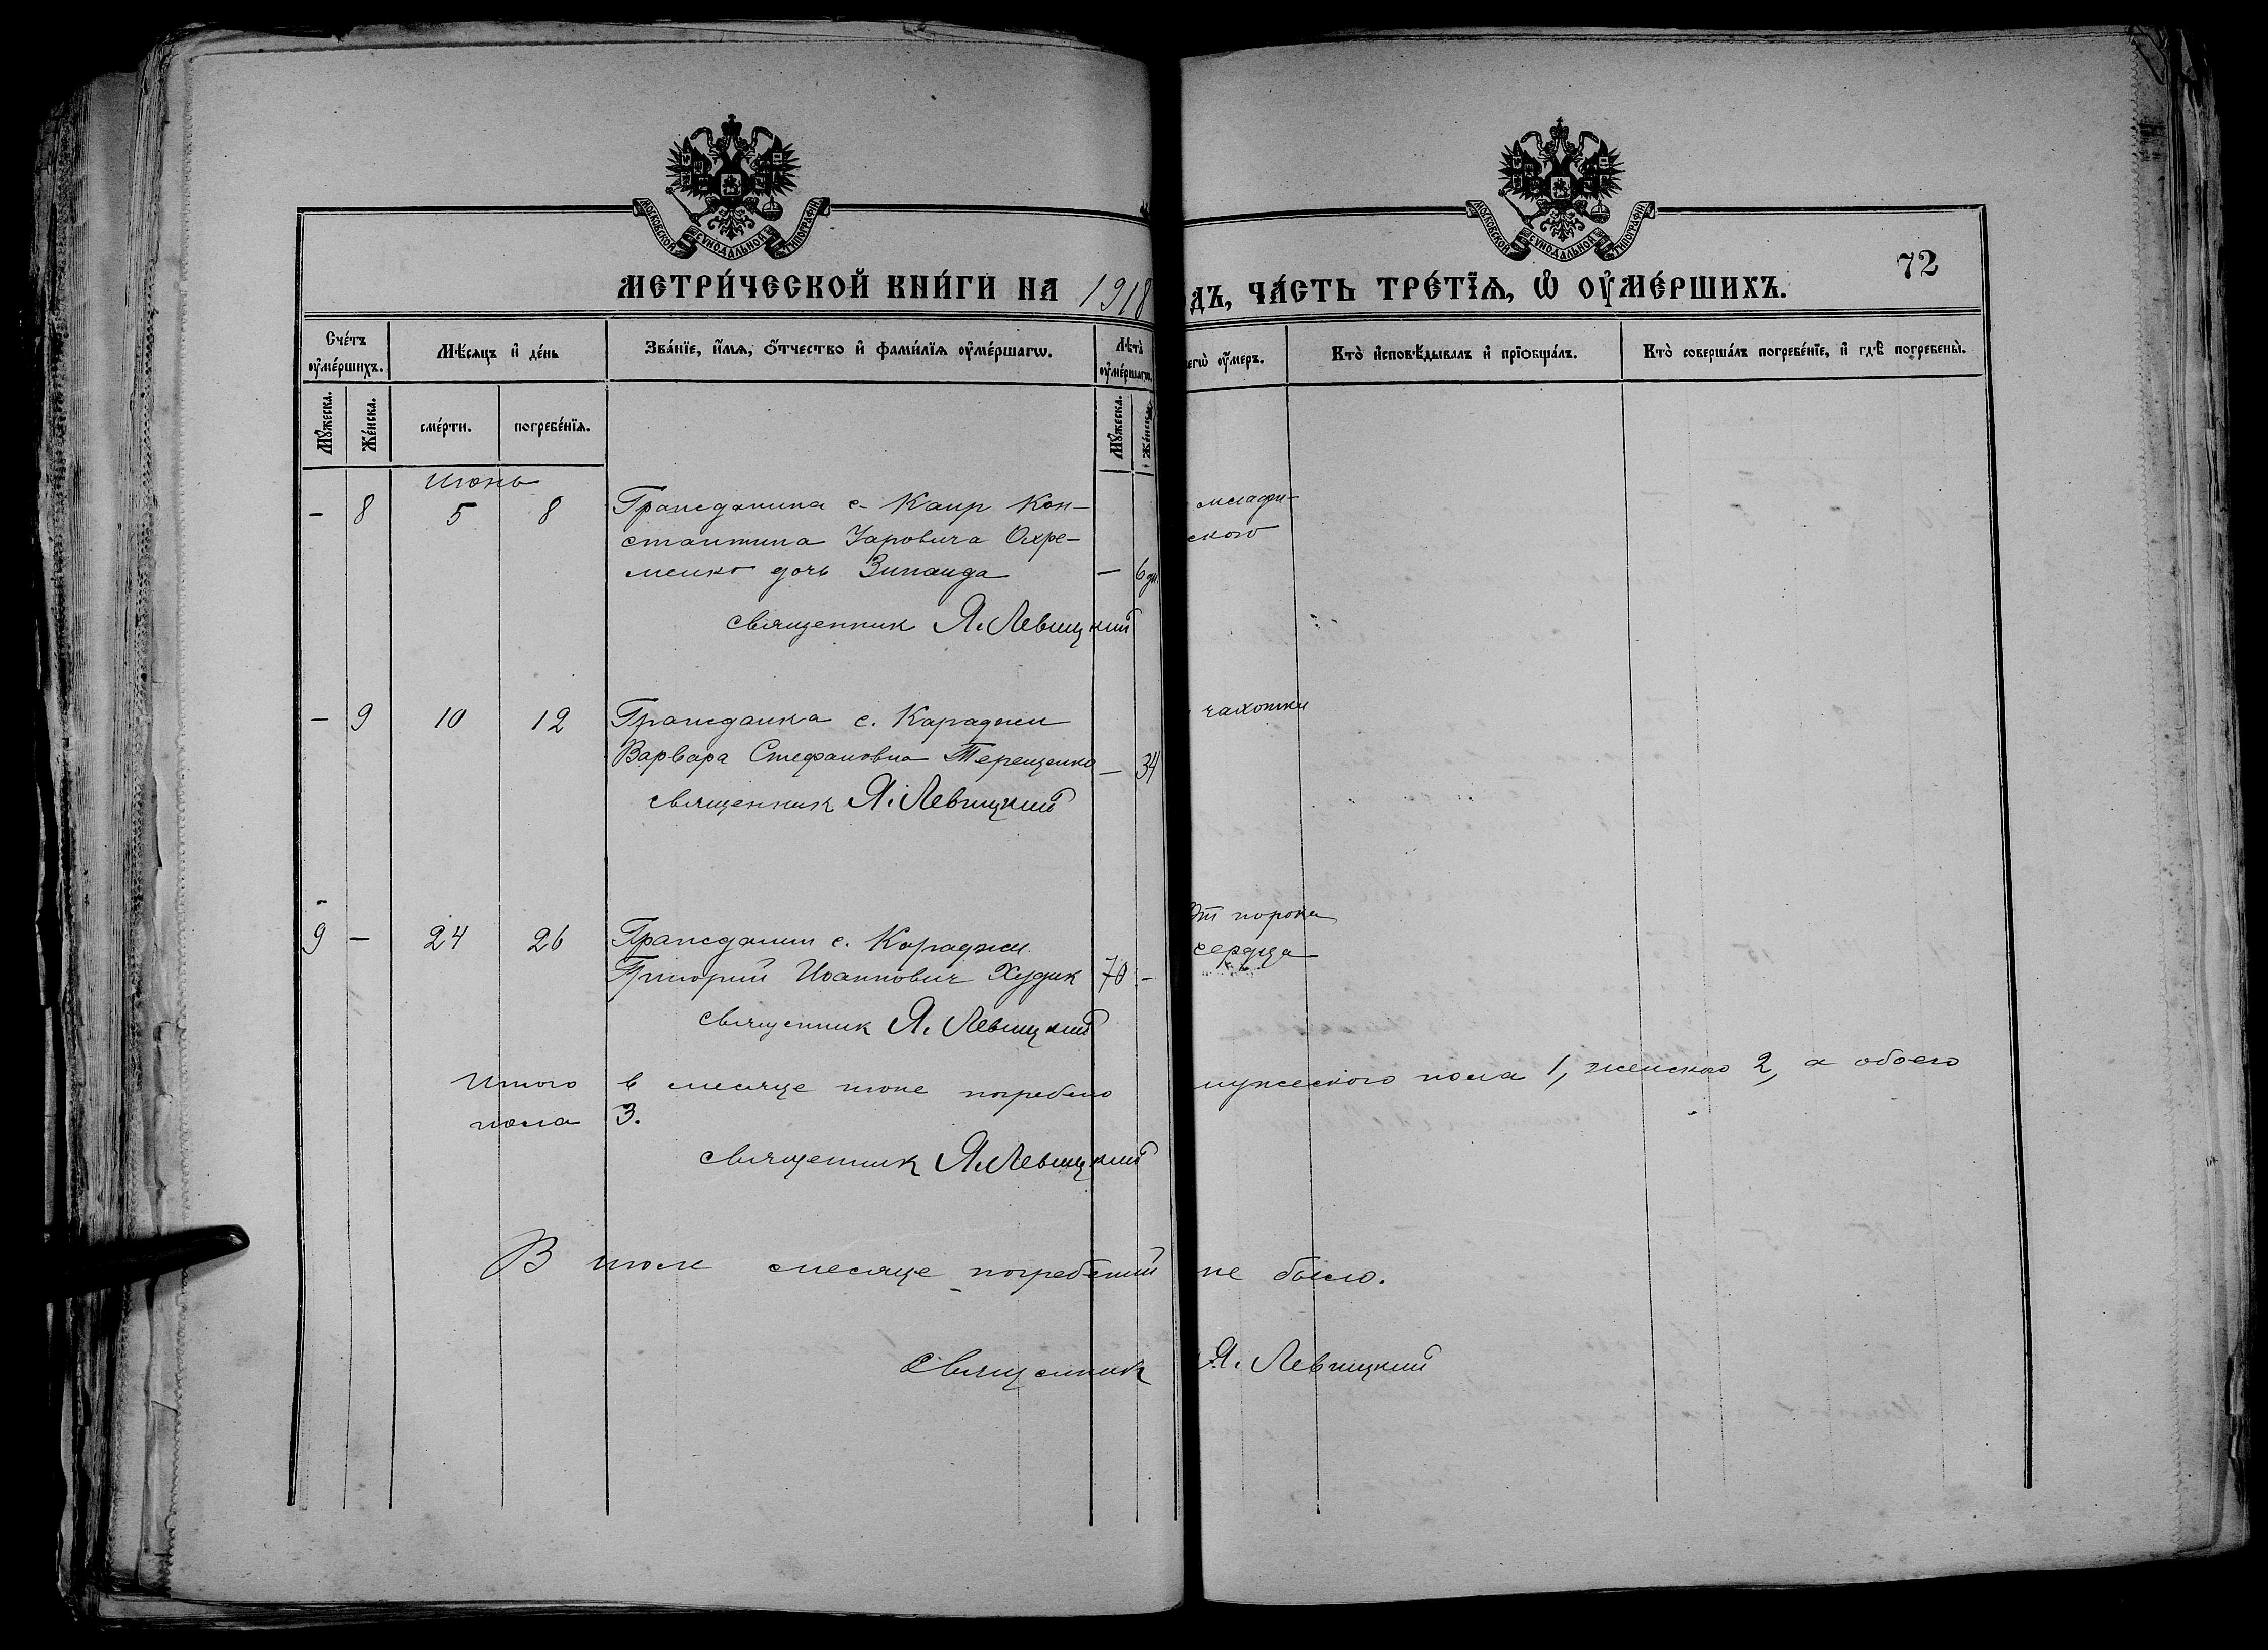 МОСКОВСКОЙ СѴНОДАЛЬНОЙ ТИПОГРАФІИ
МОСКОВСКОЙ СѴНОДАЛЬНОЙ ТИПОГРАФІИ
72
МЕТРИ́ЧЕСКОЙ КНИ́ГИ НА 1918
ДЪ, ЧА́СТЬ ТРЕ́ТЇѦ, Ѡ҆ ОУ҆МЕ́РШИХЪ.
Сче́тъ оу҆ме́ршихъ.
Мѣ́сяцъ и҆ де́нь
Зва́нїе, и҆́мя, ѻ҆́тчество и҆ фами́лїя оу҆ме́ршагѡ.
Лѣта̀ оу҆ме́ршагѡ.
егѡ̀ оу҆́меръ.
Кто̀ и҆сповѣ́дывалъ и҆ прїѻбща́лъ.
Кто̀ соверша́лъ погребе́нїе, и҆ гдѣ̀ погребены̀.
Мꙋ́жеска.
Же́нска.
сме́рти.
погребе́нїя.
Мꙋ́жеска.
Же́нска.
Июнь
- 8 5 8 Гражданина с. Каир Кон- млади-
стантина Уаровича Охре- ского
менко дочь Зинаида - 6 дн.
священник Я. Левицкий
- 9 10 12 Гражданка с. Караджи чахотки
Варвара Стефановна Терещенко - 34
священник Я. Левицкий
9 - 24 26 Гражданин с. Караджи От порока
Григорий Иоаннович Худик 70 - сердца
священник Я. Левицкий
Итого в месяце июне погребено мужеского пола 1, женскаго 2, а обоего
пола 3.
священник Я. Левицкий
В июле месяце погребений не было.
Священник Я. Левицкий